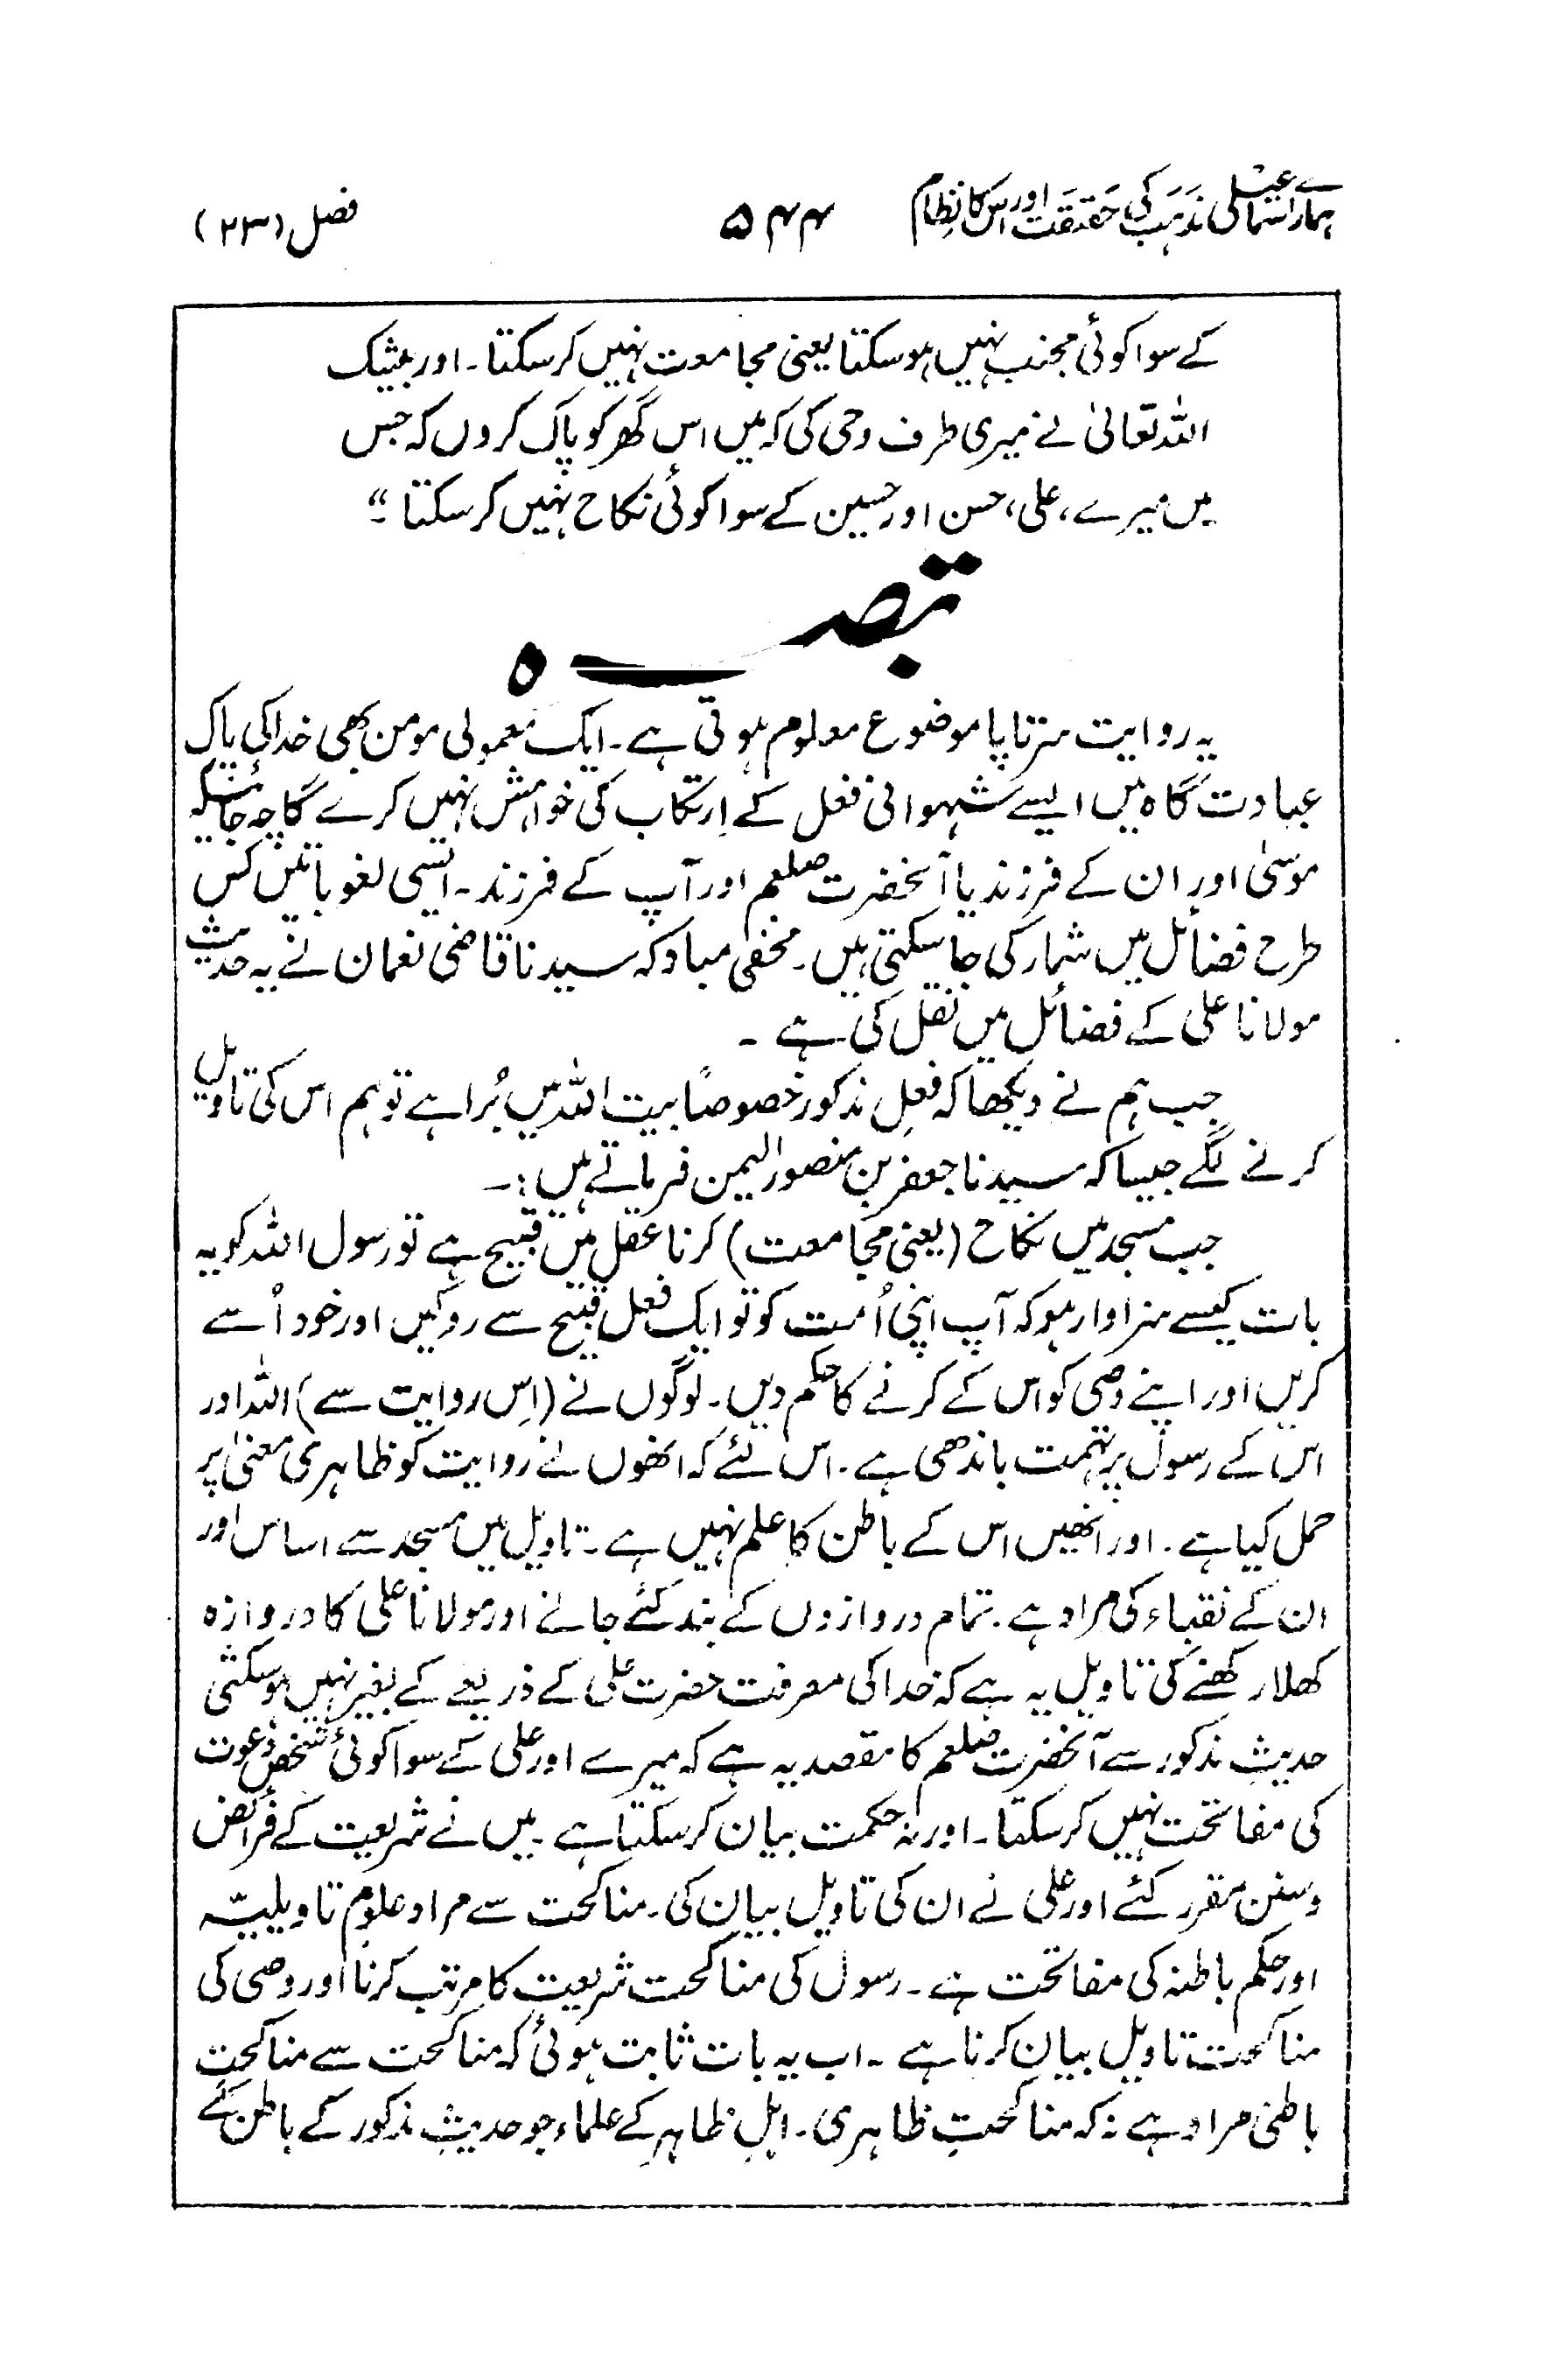 ہمارے اسماعیلی مذہب کی حقیقت اور اس کا نظام ۵۴۴ فصل (۲۳)
کے سوا کوئی مجنب نہیں ہو سکتا یعنی مجامعت نہیں کر سکتا۔ اور بیشک
اللہ تعالیٰ نے میری طرف وحی کی کہ میں اس گھر کو پاک کروں کہ جس
میں میرے، علی، حسن اور حسین کے سوا کوئی نکاح نہیں کر سکتا۔“
تبصرہ
یہ روایت سرتاپا موضوع معلوم ہوتی ہے۔ ایک معمولی مومن بھی خدا کی پاک
عبادت گاہ میں ایسے شہوانی فعل کے اِرتکاب کی خواہش نہیں کرے گا چہ جائیکہ
موسیٰ اور ان کے فرزند یا آنحضرت صلعم اور آپ کے فرزند۔ ایسی لغو باتیں کس
طرح فضائل میں شمار کی جا سکتی ہیں۔ مخفی مباد کہ سیدنا قاضی نعمان نے یہ حدیث
مولانا علی کے فضائل میں نقل کی ہے۔
جب ہم نے دیکھا کہ فعلِ مذکور خصوصًا بیت اللہ میں بُرا ہے تو ہم اس کی تاویل
کرنے لگے جیسا کہ سیدنا جعفر بن منصور الیمن فرماتے ہیں:۔
جب مسجد میں نکاح (یعنی مجامعت) کرنا عقل میں قبیح ہے تو رسول اللہ کو یہ
بات کیسے سزاوار ہو کہ آپ اپنی اُمت کو تو ایک فعل قبیح سے روکیں اور خود اُسے
کریں اور اپنے وصی کو اس کے کرنے کا حکم دیں۔ لوگوں نے (اِس روایت سے) اللہ اور
اس کے رسول پر تہمت باندھی ہے۔ اس لئے کہ انھوں نے روایت کو ظاہری معنیٰ پر
حمل کیا ہے۔ اور انھیں اس کے باطن کا علم نہیں ہے۔ تاویل میں مسجد سے اساس اور
ان کے نقباء کی مراد ہے۔ تمام دروازوں کے بند کئے جانے اور مولانا علی کا دروازہ
کھلا رکھنے کی تاویل یہ ہے کہ خدا کی معرفت حضرت علی کے ذریعے کے بغیر نہیں ہو سکتی
حدیثِ مذکور سے آنحضرت صلعم کا مقصد یہ ہے کہ میرے اور علی کے سوا کوئی شخص دعوت
کی مفاتحت نہیں کر سکتا۔ اور نہ حکمت بیان کر سکتا ہے۔ میں نے شریعت کے فرائض
و سنن مقرر کئے اور علی نے ان کی تاویل بیان کی۔ مناکحت سے مراد علوم تاویلیّہ
اور حکم باطنہ کی مفاتحت ہے۔ رسول کی مناکحت شریعت کا مرتب کرنا اور وصی کی
مناکحت تاویل بیان کرنا ہے۔ اب یہ بات ثابت ہوئی کہ مناکحت سے مناکحتِ
باطنی مراد ہے نہ کہ مناکحتِ ظاہری۔ اہلِ ظاہر کے علماء جو حدیثِ مذکور کے باطن کے